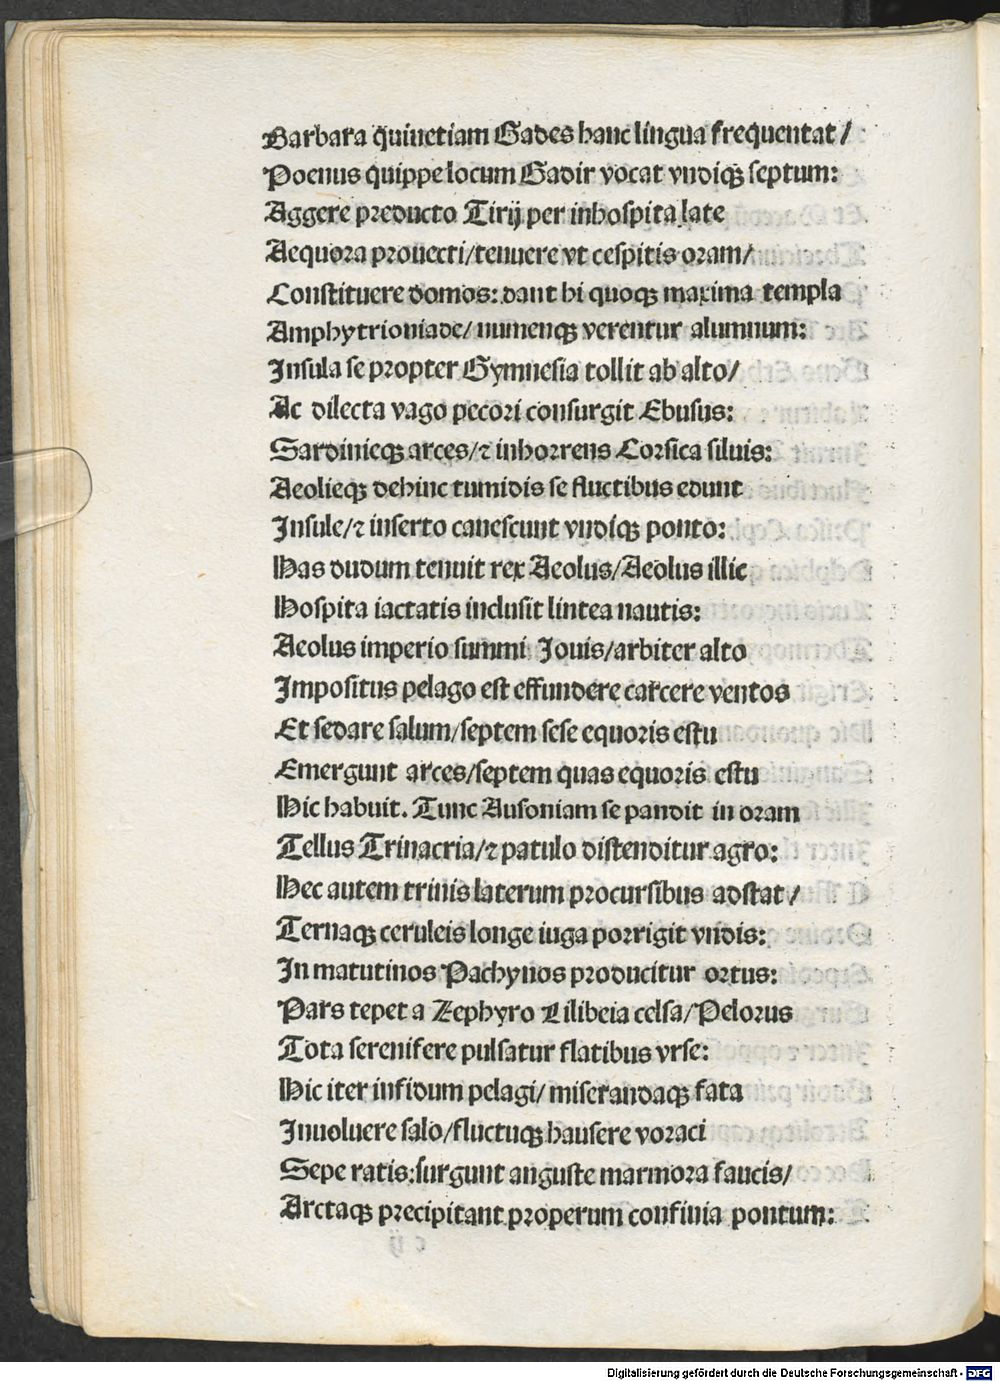 Barbara quiuetiam Gades hanc lingua frequentat/
Poenus quippe locum Gadir vocat vndiqꝫ septum:
Aggere preducto Tirij per inhospita late
Aequora prouecti/tenuere vt cespitis oram/
Constituere domos: dant hi quoqꝫ maxima templa
Amphytrioniade/numenqꝫ verentur alumnum:
Insula se propter Gymnesia tollit ab alto/
Ac dilecta vago pecori consurgit Ebusus:
Sardinieqꝫ arces/⁊ inhorrens Corsica siluis:
Aeolieqꝫ dehinc tumidis se fluctibus edunt
Insule/⁊ inserto canescunt vndiqꝫ ponto:
Has dudum tenuit rex Aeolus/Aeolus illic
Hospita iactatis inclusit lintea nautis:
Aeolus imperio summi Jouis/arbiter alto
Impositus pelago est effundere carcere ventos
Et sedare salum/septem sese equoris estu
Emergunt arces/septem quas equoris estu
Hic habuit. Tunc Ausoniam se pandit in oram
Tellus Trinacria/⁊ patulo distenditur agro:
Hec autem trinis laterum procursibus adstat/
Ternaqꝫ ceruleis longe iuga porrigit vndis:
In matutinos Pachynos producitur ortus:
Pars tepet a Zephyro Lilibeia celsa/Pelorus
Tota serenifere pulsatur flatibus vrse:
Hic iter infidum pelagi/ miserandaqꝫ fata
Inuoluere salo/fluctuqꝫ hausere voraci
Sepe ratis:surgunt anguste marmora faucis/
Arctaqꝫ precipitant properum confinia pontum:
Digitalisierung gefördert durch die Deutsche Forschungsgemeinschaft - DFG